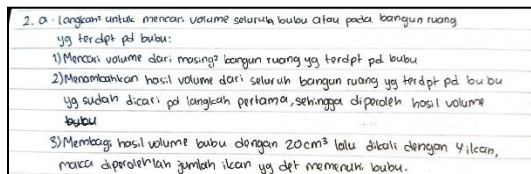 2. a. Langkah² untuk mencari volume seluruh bubu atau pada bangun ruang
yg terdpt pd bubu:
1) Mencari volume dari masing² bangun ruang yg terdpt pd bubu
2) Menambahkan hasil volume dari seluruh bangun ruang yg terdpt pd bubu
yg sudah dicari pd langkah pertama, sehingga diperoleh hasil volume
bubu
3) Membagi hasil volume bubu dengan 20cm³ lalu dikali dengan 4 ikan,
maka diperolehlah jumlah ikan yg dpt memenuhi bubu.